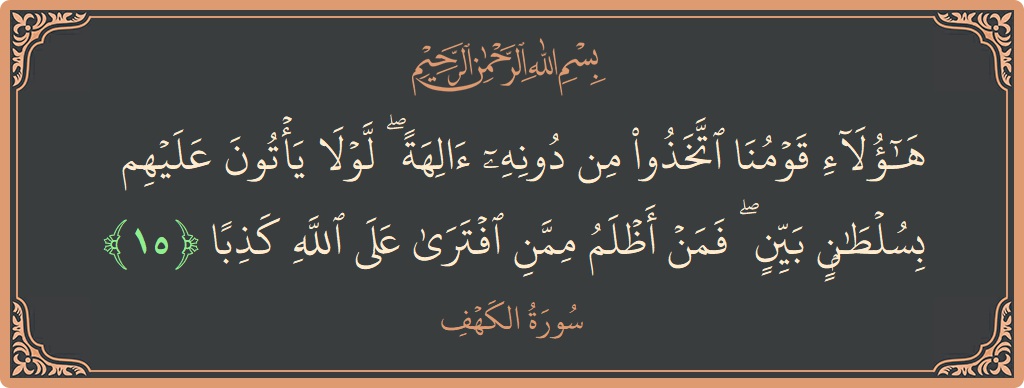 بِسْمِ اللهِ الرَّحْمٰنِ الرَّحِيْمِ
هَـٰٓؤُلَآءِ قَوْمُنَا ٱتَّخَذُوا۟ مِن دُونِهِۦٓ ءَالِهَةًۭ ۖ لَّوْلَا يَأْتُونَ عَلَيْهِم
بِسُلْطَـٰنٍۭ بَيِّنٍۢ ۖ فَمَنْ أَظْلَمُ مِمَّنِ ٱفْتَرَىٰ عَلَى ٱللَّهِ كَذِبًۭا ﴿١٥﴾
سُورَةُ الكَهْفِ